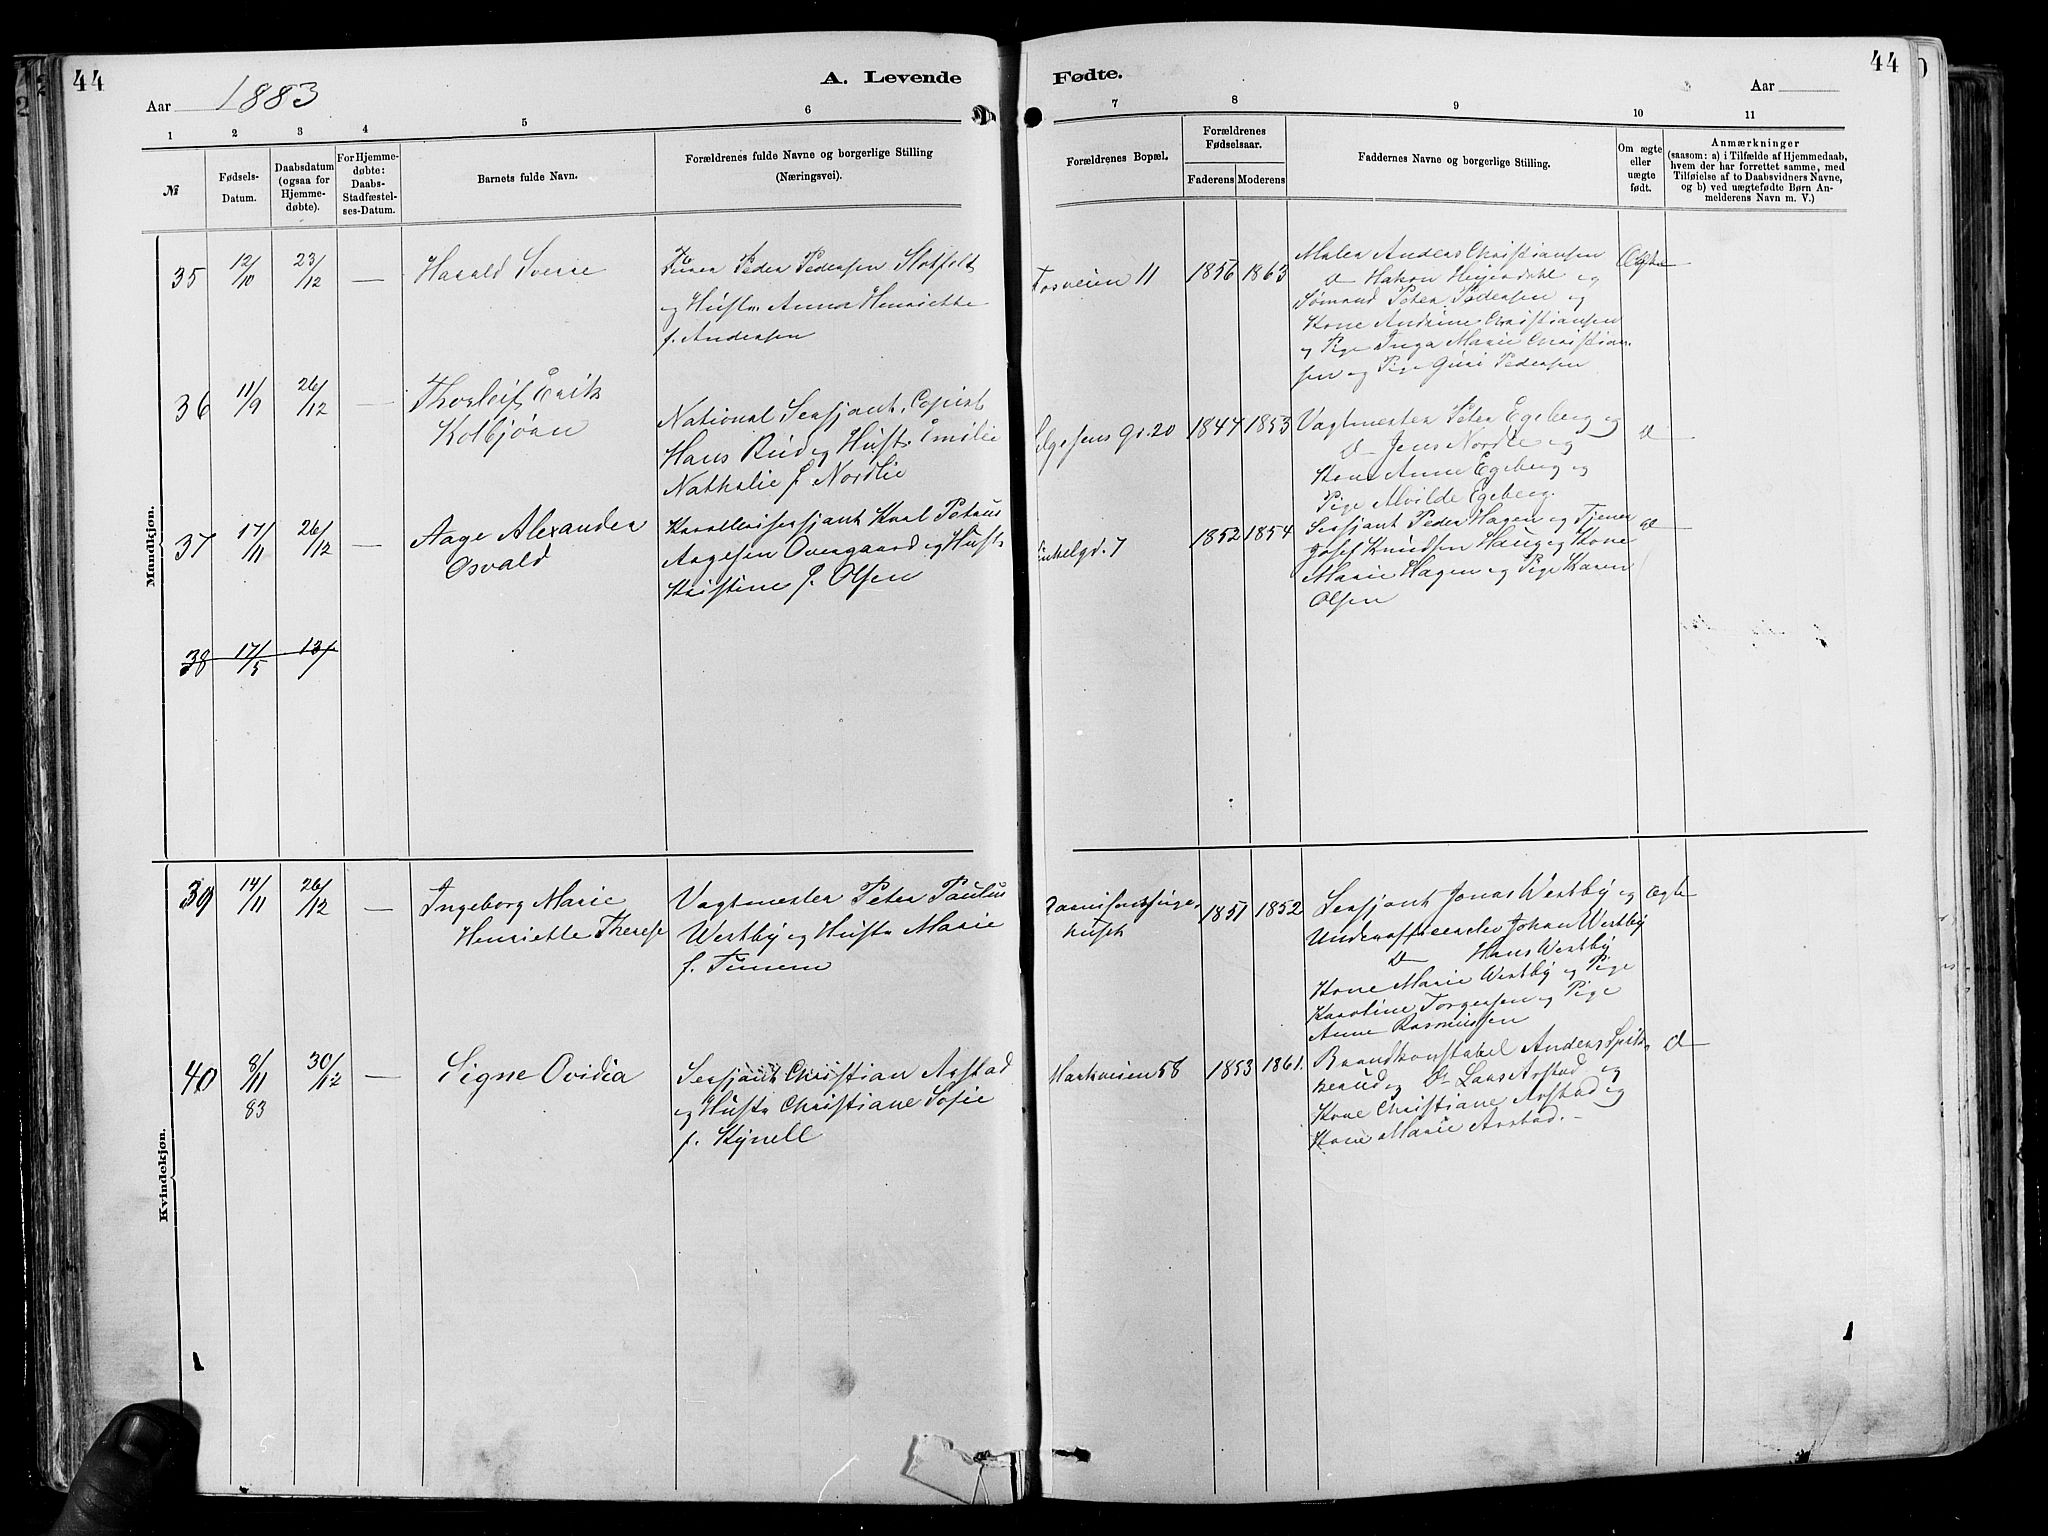 44
Aar 1883
A. Levende
1
2
3
4
5
6
№
Fødsels-
Datum.
Daabsdatum
(ogsaa for
Hjemme-
døbte).
For Hjemme-
døbte:
Daabs-
Stadfæstel-
ses-Datum.
Barnets fulde Navn.
Forældrenes fulde Navne og borgerlige Stilling
(Næringsvei).
Mandkjøn.
35 12/10 23/12 — Harald Sverre
Peder Pedersen
og Hustru Anna Henriette
f. Andersen
36 11/9 26/12 — Thorleif Erik
Kolbjørn
National Sersjant, Copist
Hans Ruud og Hust. Emilie
Nathalie f. Nordlie
37 17/11 26/12 — Aage Alexander
Osvald
Karl Petrus
Aagesen Overgaard og Hust.
Kristine f. Olsen
38 17/5 13/
Kvindekjøn.
39 14/11 26/12 — Ingeborg Marie
Henriette Therese
Vagtmester Peter Paulus
Westby og Hustr. Marie
f.
40 8/11 83 30/12 — Signe Ovidia
Sersjant Christian Aarstad
og Hustr. Christiane Sofie
f. Kynell
Fødte.
44
Aar
7
8
9
10
11
Forældrenes Bopæl.
Forældrenes
Fødselsaar.
Faderens
Moderens
Faddernes Navne og borgerlige Stilling.
Om ægte
eller
uægte
født.
Anmærkninger
(saasom: a) i Tilfælde af Hjemmedaab,
hvem der har forrettet samme, med
Tilføielse af to Daabsvidners Navne,
og b) ved uægtefødte Børn An-
melderens Navn m. V.)
Fosveien 11 1856 1863
Maler Anders Christiansen
Do Hakon Heyerdahl og
Sømand Peter Pedersen og
Kone Andrine Christiansen
og Pige Inga Marie Christian-
sen og Pige Guri Pedersen
Ægte
Helgesens Gd. 20 1847 1853
Vagtmester Peter Egeberg og
Do Jens Nordlie og
Kone Anne Egeberg og
Pige Alvilde Egeberg.
Do
7 1852 1854
Sersjant Peder Hagen og Tjener
Josef Knudsen Haug og Kone
Marie Hagen og Pige Karen
Olsen
Do
1851 1852
Sersjant Jonas Westby og
Underofficerselev Johan Westby
Do Hans Westby
Kone Marie Westby og Pige
Karoline Torgersen og Pige
Anne Rasmussen
Ægte
Markveien 58 1853 1861.
Brandkonstabel Anders
og Do Lars Aarstad og
Kone Christiane Aarstad og
Kone Marie Aarstad. -
Do